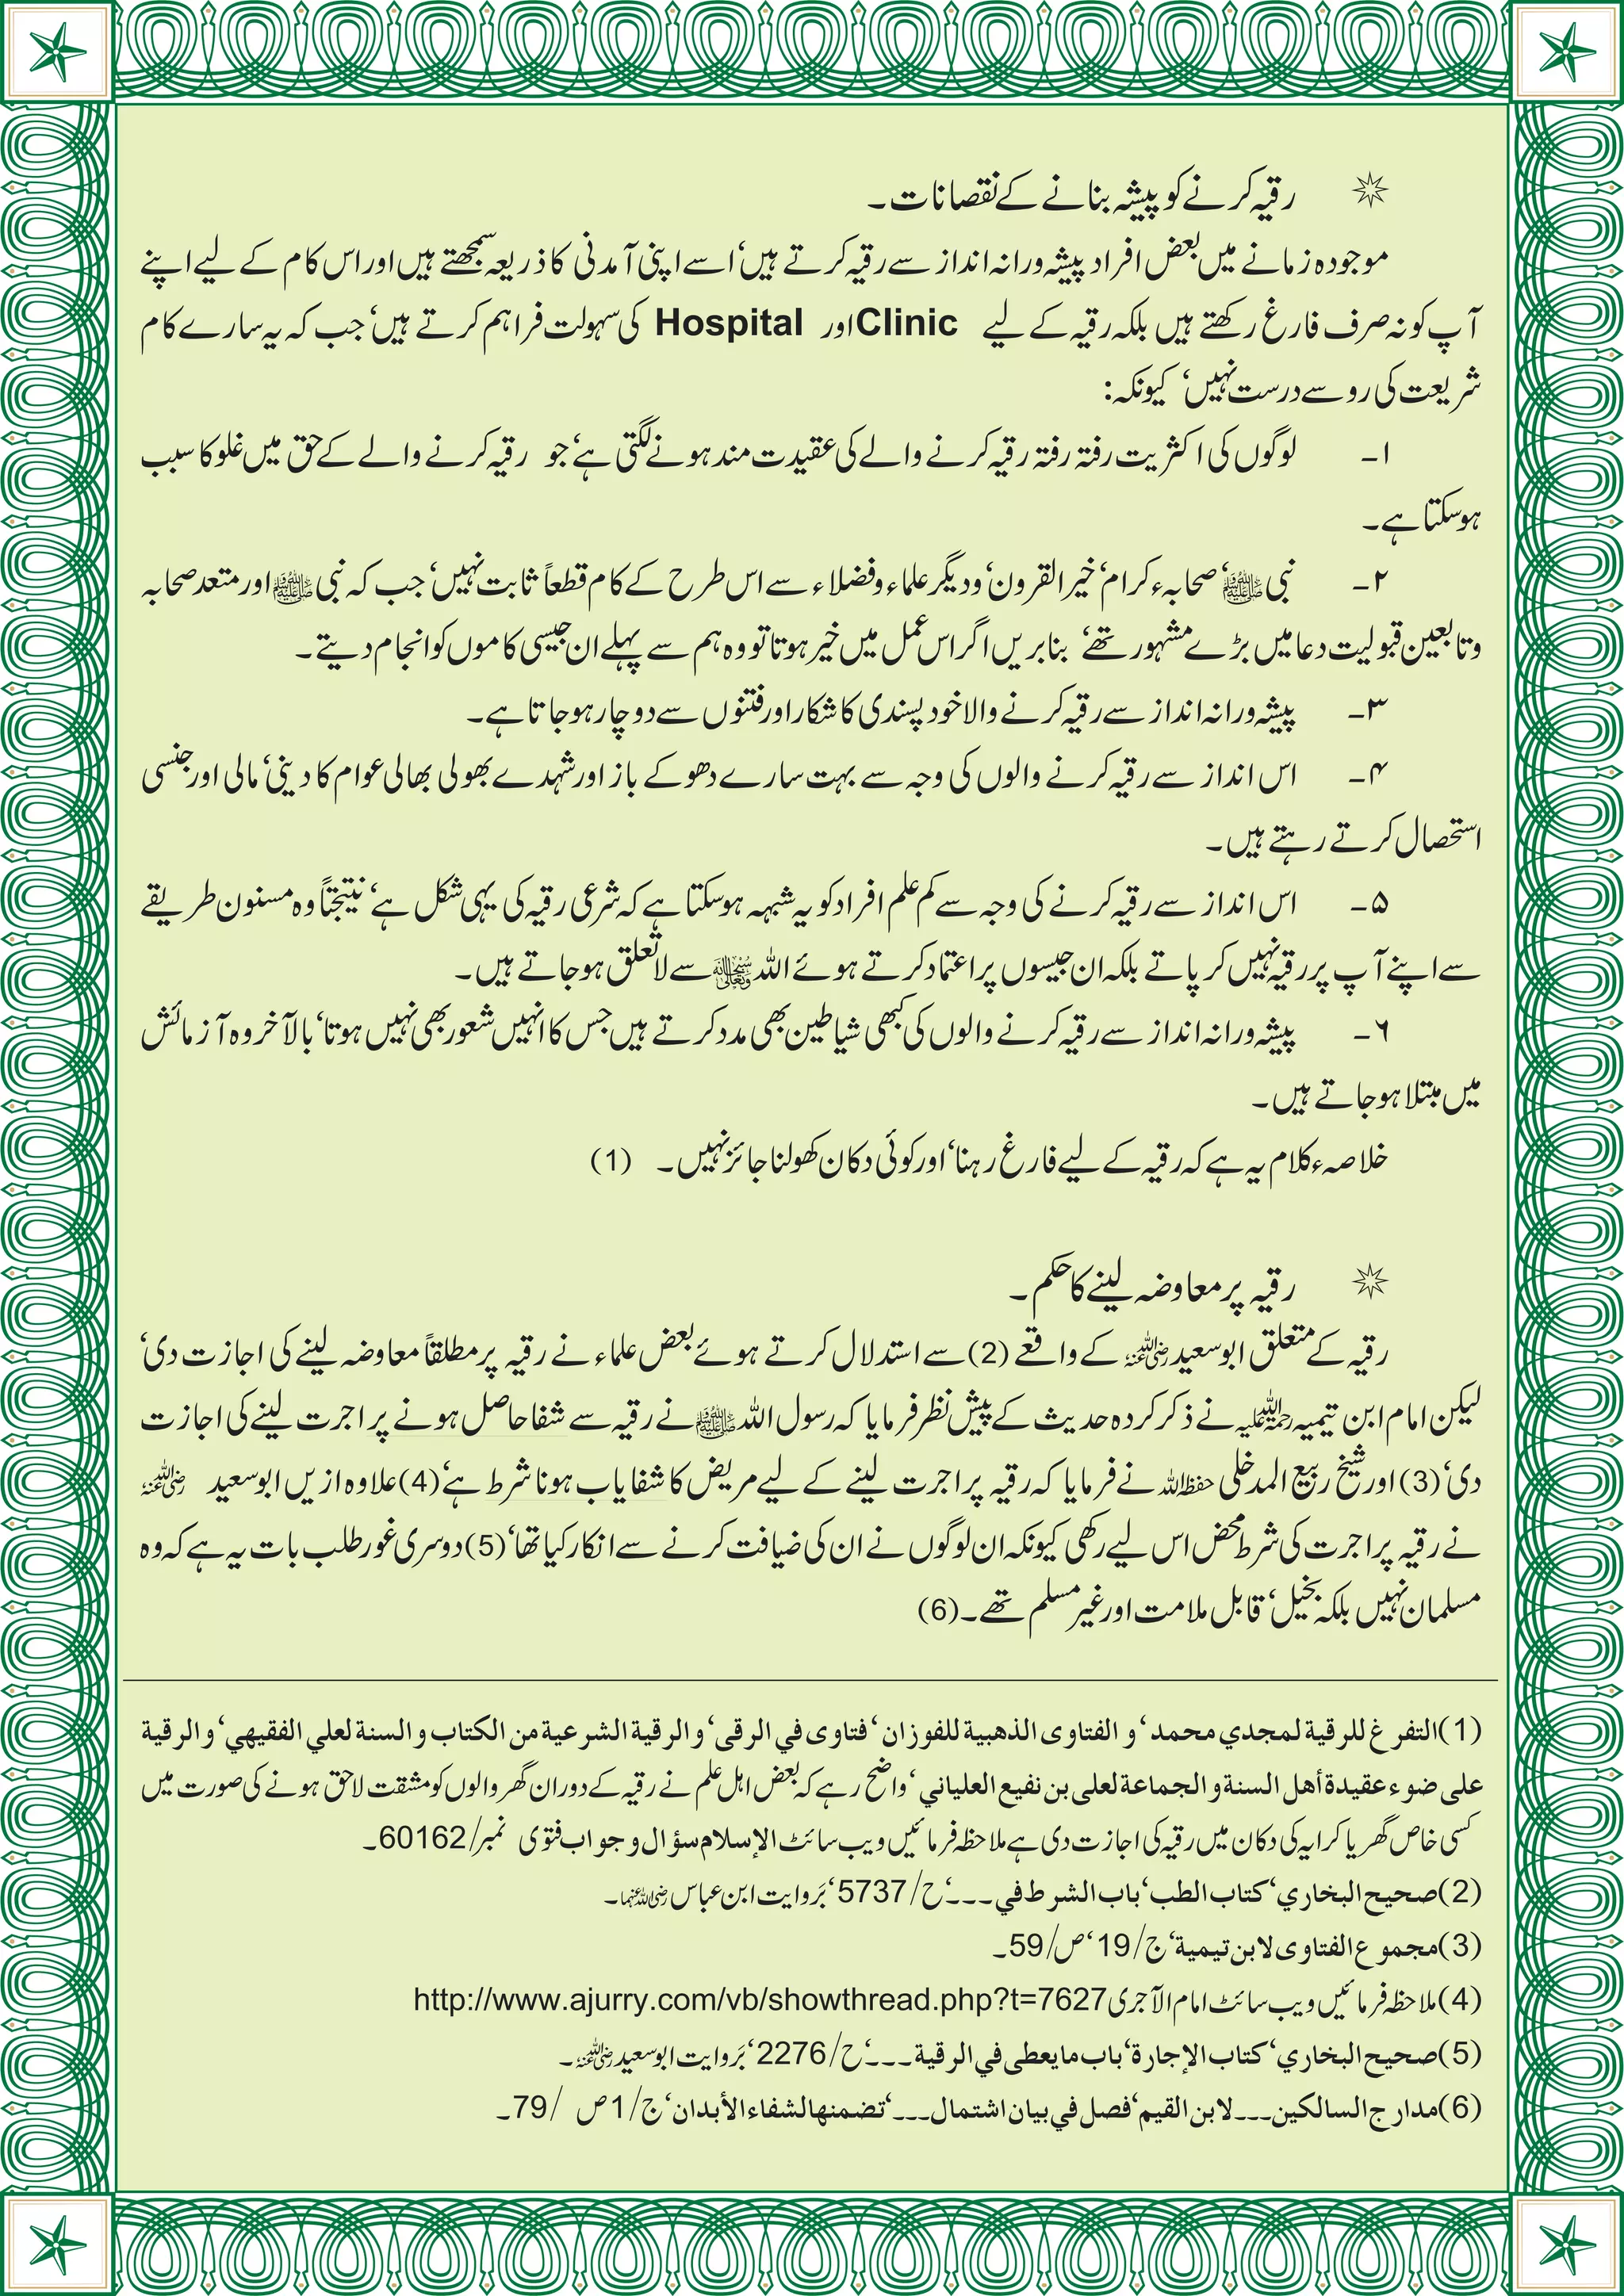 رقیہ کرنے کو پیشہ بنانے کے نقصانات۔
موجودہ زمانے میں بعض افراد پیشہ ورانہ انداز سے رقیہ کرتے ہیں‘ اسے اپنی آمدنی کا ذریعہ سمجھتے ہیں اور اس کام کے لیے اپنے
آپ کو نہ صرف فارغ رکھتے ہیں بلکہ رقیہ کے لیے Clinic اور Hospital کی سہولت فراہم کرتے ہیں‘ جب کہ یہ سارے کام
شریعت کی رو سے درست نہیں‘ کیونکہ:
۱۔ لوگوں کی اکثریت رفتہ رفتہ رقیہ کرنے والے کی عقیدت مند ہونے لگتی ہے‘ جو رقیہ کرنے والے کے حق میں غلو کا سبب
ہوسکتا ہے۔
۲۔ نبی ﷺ‘ صحابہء کرام‘ خیر القرون‘ ودیگر علماء وفضلاء سے اس طرح کے کام قطعاً ثابت نہیں‘ جب کہ نبی ﷺ اور متعدد صحابہ
وتابعین قبولیت دعا میں بڑے مشہور تھے‘ بنابریں اگر اس عمل میں خیر ہوتا تو وہ ہم سے پہلے ان جیسی کاموں کو انجام دیتے۔
۳۔ پیشہ ورانہ انداز سے رقیہ کرنے والا خود پسندی کا شکار اور فتنوں سے دوچار ہوجاتا ہے۔
۴۔ اس انداز سے رقیہ کرنے والوں کی وجہ سے بہت سارے دھوکے باز اور شہدے بھولی بھالی عوام کا دینی‘ مالی اور جنسی
استحصال کرتے رہتے ہیں۔
۵۔ اس انداز سے رقیہ کرنے کی وجہ سے کم علم افراد کو یہ شبہہ ہوسکتا ہے کہ شرعی رقیہ کی یہی شکل ہے‘ نتیجتاً وہ مسنون طریقے
سے اپنے آپ پر رقیہ نہیں کر پاتے بلکہ ان جیسوں پر اعتماد کرتے ہوئے اللہ سبحانہ وتعالی سے لاتعلق ہوجاتے ہیں۔
۶۔ پیشہ ورانہ انداز سے رقیہ کرنے والوں کی کبھی شیاطین بھی مدد کرتے ہیں جس کا انہیں شعور بھی نہیں ہوتا‘ بالآخر وہ آزمائش
میں مبتلا ہوجاتے ہیں۔
خلاصہء کلام یہ ہے کہ رقیہ کے لیے فارغ رہنا‘ اور کوئی دکان کھولنا جائز نہیں۔ (1)
رقیہ پر معاوضہ لینے کا حکم۔
رقیہ کے متعلق ابوسعید رضی اللہ عنہ کے واقعے (2) سے استدلال کرتے ہوئے بعض علماء نے رقیہ پر مطلقاً معاوضہ لینے کی اجازت دی‘
لیکن امام ابن تیمیہ رحمۃ اللہ علیہ نے ذکر کردہ حدیث کے پیش نظر فرمایا کہ رسول اللہ ﷺ نے رقیہ سے شفا حاصل ہونے پر اجرت لینے کی اجازت
دی‘ (3) اور شیخ ربیع المدخلی حفظہ اللہ نے فرمایا کہ رقیہ پر اجرت لینے کے لیے مریض کا شفایاب ہونا شرط ہے‘ (4) علاوہ ازیں ابوسعید رضی اللہ عنہ
نے رقیہ پر اجرت کی شرط محض اس لیے رکھی کیونکہ ان لوگوں نے ان کی ضیافت کرنے سے انکار کیا تھا‘ (5) دوسری غور طلب بات یہ ہے کہ وہ
مسلمان نہیں بلکہ بخیل‘ قابل ملامت اور غیر مسلم تھے۔ (6)
(1) التفرغ للرقية لمجدي محمد‘ و الفتاوى الذهبية للفوزان‘ فتاوى في الرقى‘ و الرقية الشرعية من الكتاب و السنة لعلي الفقيهي‘ و الرقية
على ضوء عقيدة أهل السنة و الجماعة لعلى بن نفيع العلياني‘ واضح رہے کہ بعض اہل علم نے رقیہ کے دوران گھر والوں کو مشقت لاحق ہونے کی صورت میں
کسی خاص گھر یا کرایہ کی دکان میں رقیہ کی اجازت دی ہے ملاحظہ فرمائیں ویب سائٹ الإسلام سؤال و جواب فتوی نمبر/60162۔
(2) صحيح البخاري‘ كتاب الطب‘ باب الشرط في۔۔۔‘ ح/5737‘ بَروایت ابن عباس رضی اللہ عنہما۔
(3) مجموع الفتاوى لابن تيمية‘ ج/19‘ ص/59۔
(4) ملاحظہ فرمائیں ویب سائٹ امام الآجری http://www.ajurry.com/vb/showthread.php?t=7627
(5) صحيح البخاري‘ كتاب الإجارة‘ باب ما يعطى في الرقية۔۔۔‘ ح/2276‘ بَروایت ابوسعید رضی اللہ عنہ۔
(6) مدارج السالكين۔۔۔ لابن القيم‘ فصل في بيان اشتمال۔۔۔‘ تضمنها لشفاء الأبدان‘ ج/1 ص/79۔